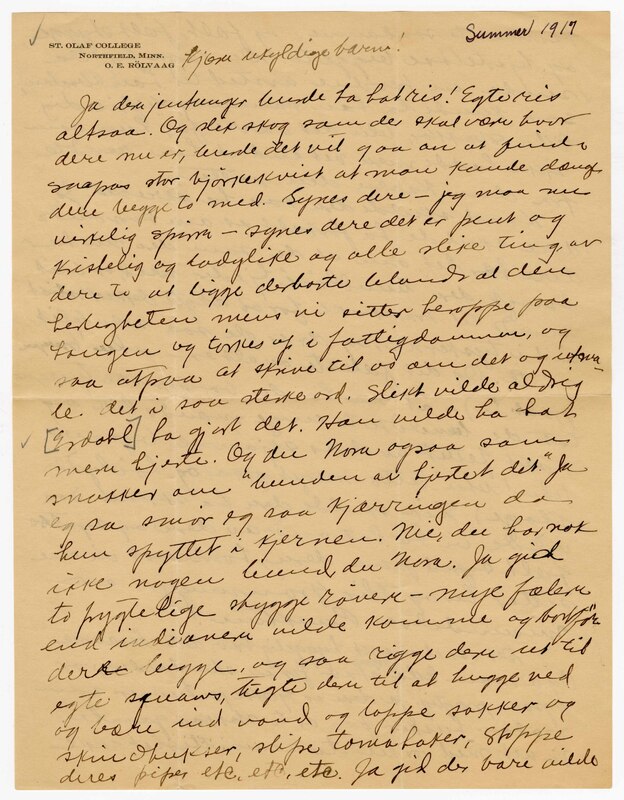 Summer 1917
ST. OLAF COLLEGE
NORTHFIELD, MINN.
O. E. RÖLVAAG
Kjære uskyldige barn!
Ja dere jentunger burde ha hat ris! Egte ris
altsaa. Og slik skog som der skal være hvor
dere nu er, burde det vel gaa an at finde
saapas stor bjørkekvist at man kunde dænge
dere begge to med. Synes dere — jeg maa nu
virkelig spørre — synes dere det er pent og
kristelig og ladylike og alle slike ting av
dere to at ligge derborte blandt al den
herligheten mens vi sitter heroppe paa
haugen og tørkes op i fattigdommen, og
saa atpaa at skrive til os om det og utma-
le det i saa sterke ord. Slikt vilde aldrig
[Erdahl] ha gjort det. Han vilde ha hat
mere hjerte. Og du Nora ogsaa som
snakker om "bunden av hjertet dit." Ja
eg sa smør eg saa kjærringen da
hun spyttet i kjernen. Nie, du har nok
ikke nogen bund, du Nora. Ja gid
to frygtelige stygge røvere — mye fælere
end indianere vilde komme og bortføre
dere begge, og saa rigge dere ut til
egte squaws, tugte dere til at hugge ved
og bære ind vand og lappe sokker og
skindbukser, slipe tomahaker, stoppe
deres piper etc, etc, etc. Ja gid der bare vilde